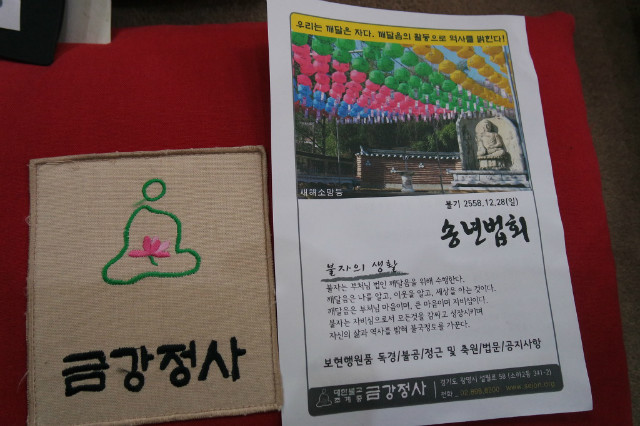 금강정사
우리는 깨달은 자다. 깨달음의 활동으로 역사를 밝힌다!
새해소망등
불기 2558.12.28(일)
송년법회
불자의 생활
불자는 부처님 법인 깨달음을 위해 수행한다.
깨달음은 나를 알고, 이웃을 알고, 세상을 아는 것이다.
깨달음은 부처님 마음이며, 큰 마음이며 자비심이다.
불자는 자비심으로서 모든것을 감싸고 성장시키며
자신의 삶과 역사를 밝혀 불국정토를 가꾼다.
보현행원품 독경/불공/정근 및 축원/법문/공지사항
대한불교
조계종
금강정사
경기도 광명시 설월로 58 (소하2동 341-2)
전화